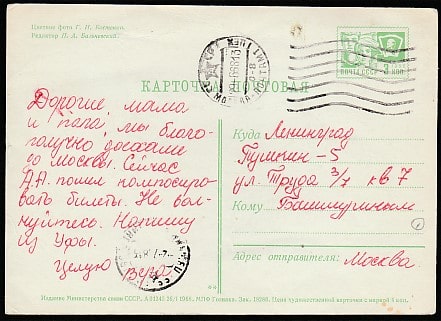 Цветное фото Г. Н. Костенко.
Редактор П. А.
ПОЧТА СССР
КАРТОЧКА ПОЧТОВАЯ
Дорогие мама
и папа, мы благо-
получно доехали
до Москвы. Сейчас
А.А. пошел компосиро-
вать билеты. Не вол-
нуйтесь. Напишу
из Уфы.
Целую Вера.
Куда Ленинград
Пушкин-5
ул. Труда 3/7 кв 7
Кому
Адрес отправителя: Москва
Издание Министерства связи СССР. 1966. МПФ Гознака. Зак. Цена художественной карточки с маркой 4 коп.